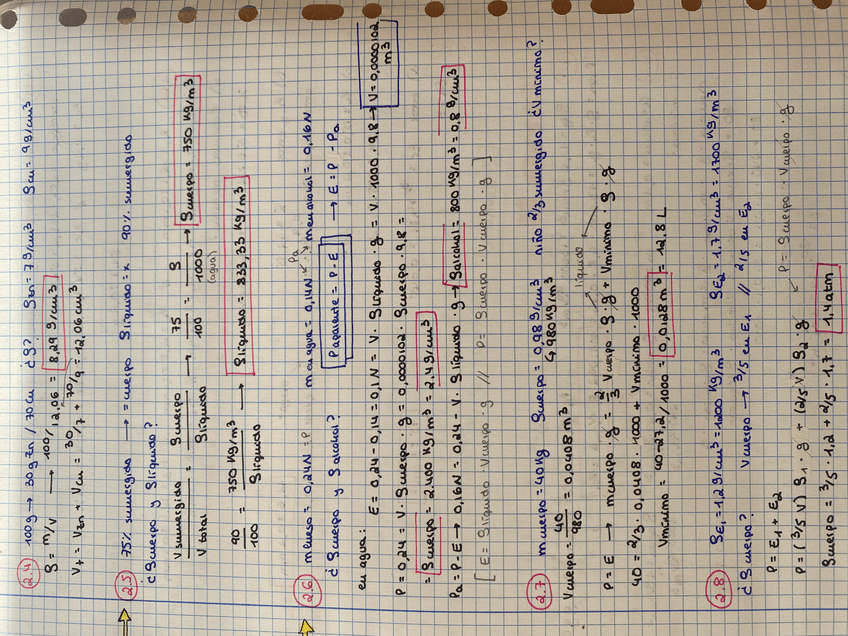 2.4 100g → 30g Zn / 70 Cu ¿ρ? ρZn = 7g/cm³ ρCu = 9g/cm³
ρ = m/V → 100/12,06 = 8,29 g/cm³
Vt = VZn + VCu = 30/7 + 70/9 = 12,06 cm³
2.5 75% sumergido → = cuerpo ρlíquido = x 90% sumergido
¿ρcuerpo y ρlíquido?
V sumergido / V total = ρcuerpo / ρlíquido → 75/100 = ρ/1000 (agua) → ρcuerpo = 750 kg/m³
90/100 = 750 kg/m³ / ρlíquido → ρlíquido = 833,33 kg/m³
2.6 m hueso = 0,24N = P m en agua = 0,14N Pa m en alcohol = 0,16N
¿ρcuerpo y ρalcohol? Paparente = P - E → E = P - Pa
en agua: E = 0,24 - 0,14 = 0,1N = V · ρlíquido · g = V · 1000 · 9,8 → V = 0,0000102 m³
P = 0,24 = V · ρcuerpo · g = 0,0000102 · ρcuerpo · 9,8 =
= ρcuerpo = 2.400 kg/m³ = 2,4 g/cm³
Pa = P - E → 0,16N = 0,24 - V · ρlíquido · g → ρalcohol = 800 kg/m³ = 0,8 g/cm³
[E = ρlíquido · Vcuerpo · g // P = ρcuerpo · Vcuerpo · g]
2.7 m cuerpo = 40kg ρcuerpo = 0,98 g/cm³ niño 2/3 sumergido ¿V mínimo?
980 kg/m³
Vcuerpo = 40/980 = 0,0408 m³
líquido
P = E → m cuerpo · g = 2/3 Vcuerpo · ρ · g + Vmínimo · ρ · g
40 = 2/3 · 0,0408 · 1000 + Vmínimo · 1000
Vmínimo = 40 - 27,2 / 1000 = 0,0128 m³ = 12,8 L
2.8 ρE1 = 1,2 g/cm³ = 1200 kg/m³ ρE2 = 1,7 g/cm³ = 1700 kg/m³
¿ρcuerpo? Vcuerpo → 3/5 en E1 // 2/5 en E2
P = E1 + E2
P = ρcuerpo · Vcuerpo · g
P = (3/5 V) ρ1 · g + (2/5 · V) ρ2 · g
ρcuerpo = 3/5 · 1,2 + 2/5 · 1,7 = 1,4 atm